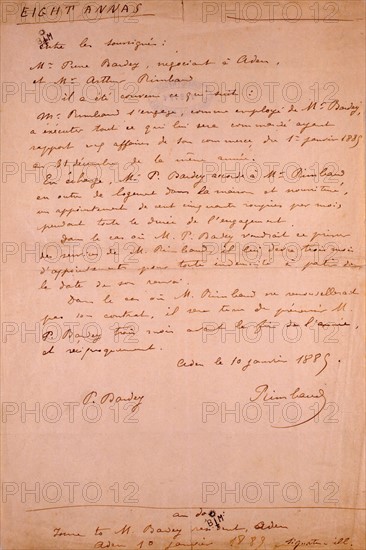 EIGHT ANNAS
Entre les soussignés :
Mr. Pierre Bardey, négociant à Aden,
et Mr. Arthur Rimbaud
il a été convenu ce qui suit :
Mr. Rimbaud s'engage, comme employé de Mr. Bardey,
à exécuter tout ce qui lui sera commandé ayant
rapport aux affaires de son commerce du 1er janvier 1885
au 31 décembre de la même année.
En échange, Mr. P. Bardey accorde à Mr. Rimbaud,
en outre de logement dans la maison et nourriture,
un appointement de cent cinquante roupies par mois,
pendant toute la durée de l'engagement.
Dans le cas où M. P. Bardey voudrait se priver
des services de M. Rimbaud, il lui devra trois mois
d'appointements pour toute indemnité à partir de
la date de son renvoi.
Dans le cas où M. Rimbaud ne renouvellerait
pas son contrat, il sera tenu de prévenir M.
P. Bardey trois mois avant la fin de l'année,
et réciproquement.
Aden le 10 janvier 1885.
P. Bardey Rimbaud
au dos
to M. Bardey Aden
Aden 10 janvier 1885
PHOTO 12